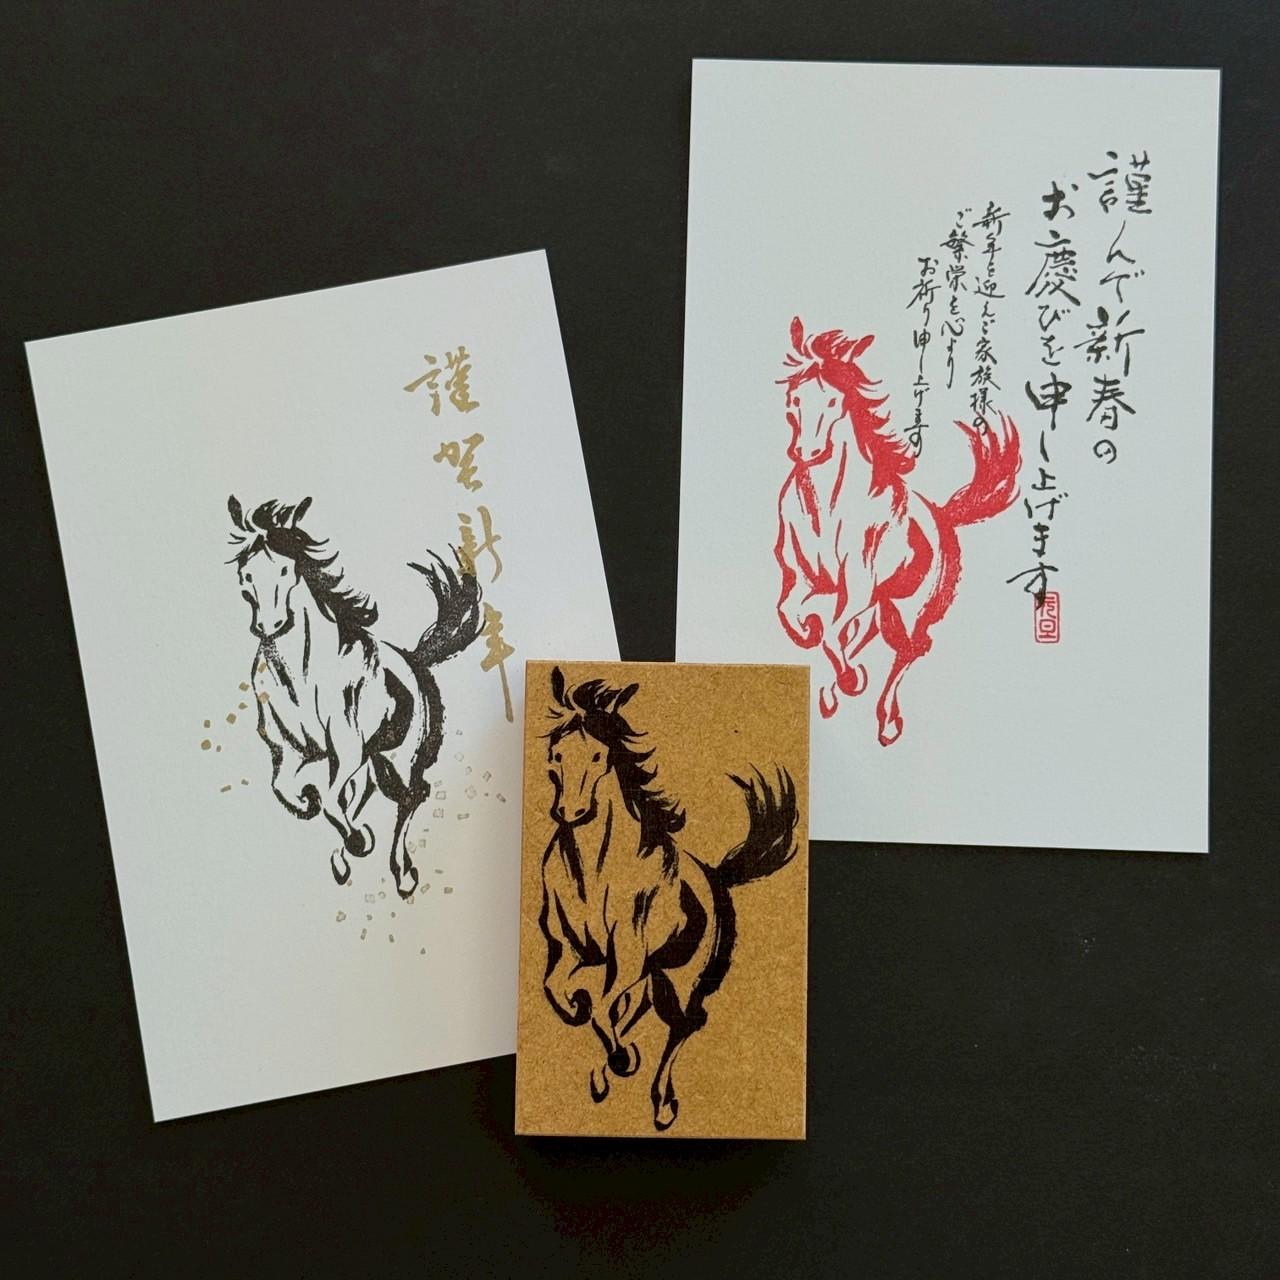 謹賀新年
謹んで新春の
お慶びを申し上げます
新年を迎えご家族様の
ご繁栄を心より
お祈り申し上げます
元旦